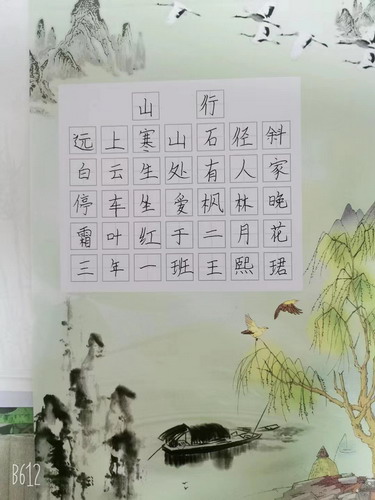 山行
远上寒山石径斜
白云生处有人家
停车坐爱枫林晚
霜叶红于二月花
三年一班王熙珺
B612